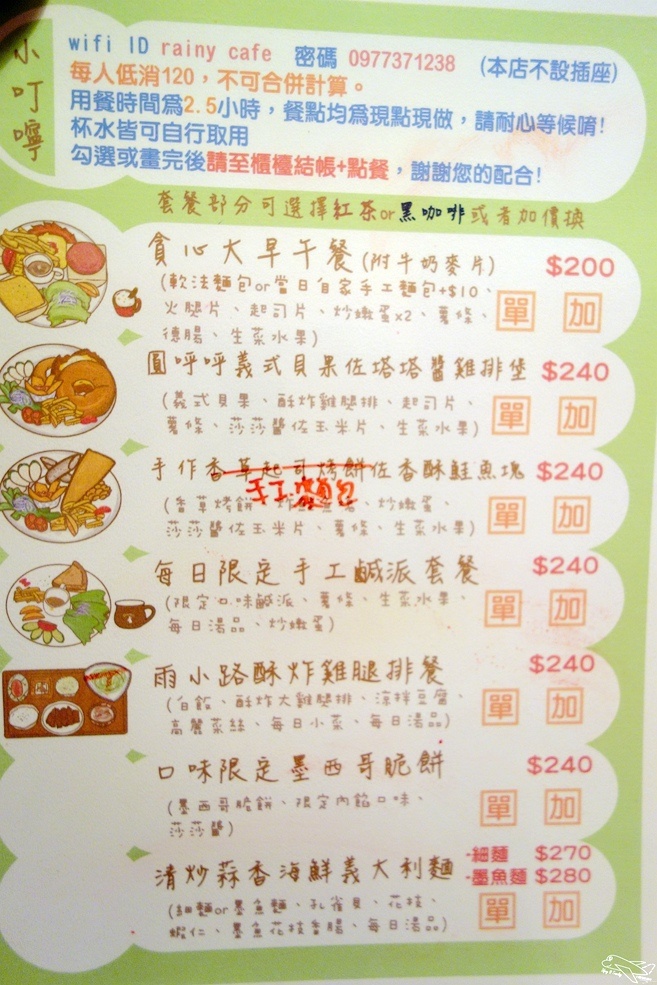 小叮嚀
wifi ID rainy cafe 密碼 0977371238 (本店不設插座)
每人低消120，不可合併計算。
用餐時間為2.5小時，餐點均為現點現做，請耐心等候唷!
杯水皆可自行取用
勾選或畫完後請至櫃檯結帳+點餐，謝謝您的配合!
套餐部分可選擇紅茶or黑咖啡或者加價換
貪心大早午餐(附牛奶麥片) $200
(軟法麵包or當日自家手工麵包+$10、
火腿片、起司片、炒嫩蛋x2、薯條、
德腸、生菜水果)
單 加
圓呼呼義式貝果佐塔塔醬雞排堡 $240
(義式貝果、酥炸雞腿排、起司片、
薯條、莎莎醬佐玉米片、生菜水果)
單 加
手作香草起司烤餅佐香酥鮭魚塊 $240
手工麵包
(香草烤餅、 炒嫩蛋、
莎莎醬佐玉米片、薯條、生菜水果)
單 加
每日限定手工鹹派套餐 $240
(限定口味鹹派、薯條、生菜水果、
每日湯品、炒嫩蛋)
單 加
雨小路酥炸雞腿排餐 $240
(白飯、酥炸大雞腿排、涼拌豆腐、
高麗菜絲、每日小菜、每日湯品)
單 加
口味限定墨西哥脆餅 $240
(墨西哥脆餅、限定內餡口味、
莎莎醬)
單 加
清炒蒜香海鮮義大利麵 -細麵 $270
-墨魚麵 $280
(細麵or墨魚麵、孔雀貝、花枝、
蝦仁、墨魚花枝香腸、每日湯品)
單 加